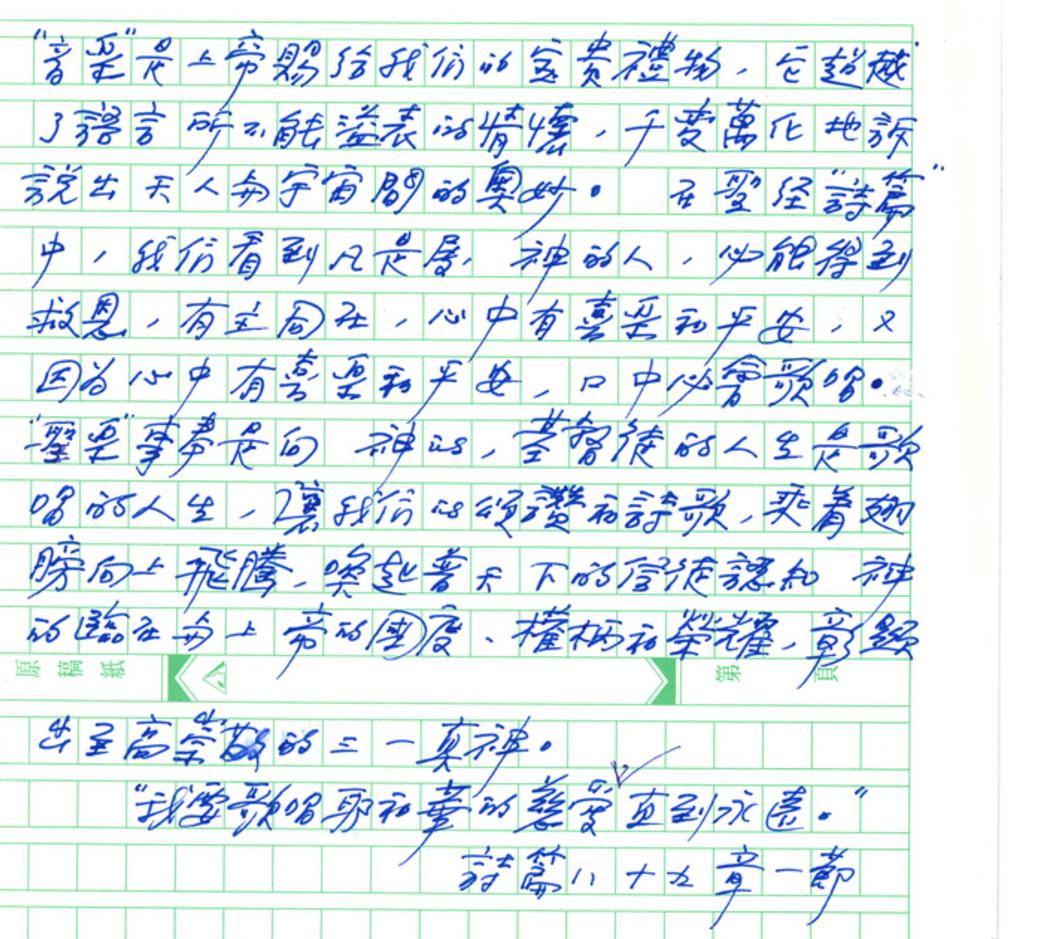 "音樂"是上帝賜給我们的宝贵禮物，它超越
了語言所不能溢表的情懷，千变萬化地訴
説出天人与宇宙間的奧妙。 在聖経"詩篇"
中，我们看到凡是属 神的人，必能得到
救恩，有主同在，心中有喜樂和平安，又
因为心中有喜樂和平安，口中必會歌唱。
"聖樂"事奉是向 神的，基督徒的人生是歌
唱的人生，讓我们的頌讚和詩歌，乘着翅
膀向上飛騰，喚起普天下的信徒認知 神
的臨在与上帝的國度、權柄和榮耀，彰顕
原稿紙 第 頁
出至高崇敬的三一真神。
"我要歌唱耶和華的慈愛直到永遠。"
詩篇八十九章一節